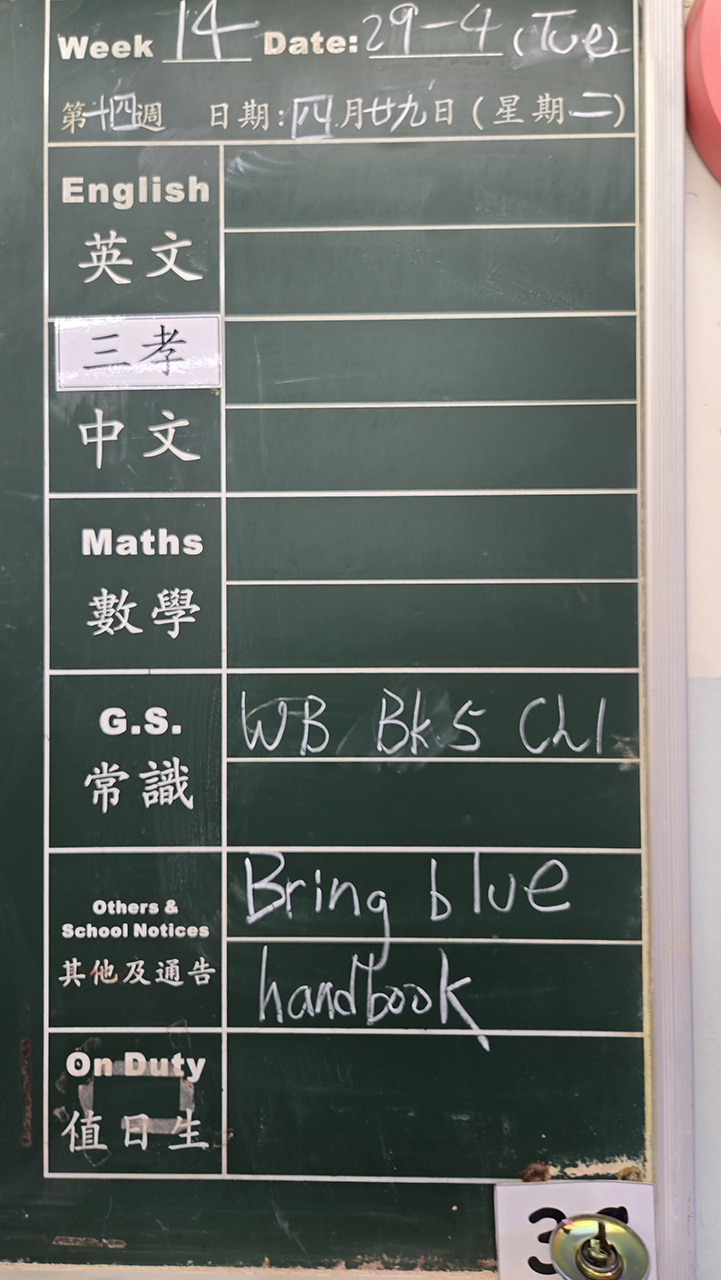 Week 14 Date: 29-4 (Tue)
第十四週 日期:四月廿九日(星期二)
English
英文
三孝
中文
Maths
數學
G.S. WB Bk.5 Ch1
常識
Others & School Notices
其他及通告
Bring blue
handbook
On Duty
值日生